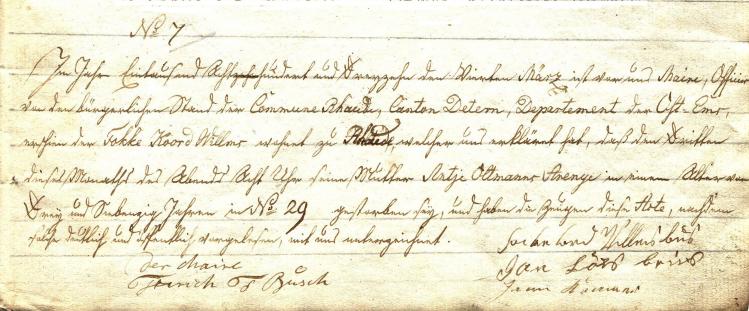 No 7
Im Jahr Eintausend Achthundert und Dreyzehn den Vierten März ist vor uns Maire, Officier
von den bürgerlichen Stand der Commune Rhaude, Canton Detern, Departement der Ost-Ems,
erschien der Fokke Koord Willms wohnt zu Rhaude, welcher uns erklärt hat, daß den Dritten
dieses Monaths des Abends Acht Uhr seine Mutter Antje Oltmanns Arenge in einem Alter von
Drey und Siebenzig Jahren in No 29 gestorben sey, und haben die Zeugen diese Akte, nachdem
solche deutlich und öffentlich vorgelesen, mit uns unterzeichnet.
Der Maire
Hinrich Busch
Jan